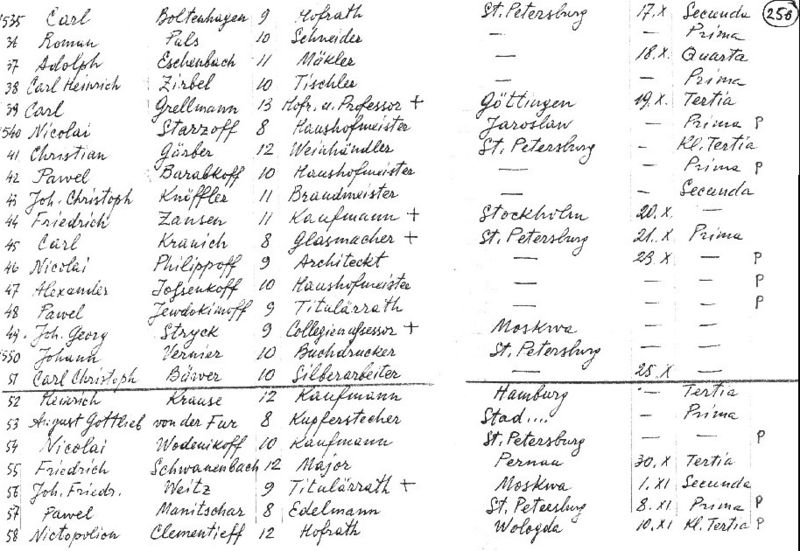 1535 Carl Boltenhagen 9 Hofrath St. Petersburg 17.X Secunda 256
36 Roman Pals 10 Schneider — — Prima
37 Adolph Eschenbach 11 Mäkler — 18.X. Quarta
38 Carl Heinrich Zirbel 10 Tischler — — Prima
39 Carl Grellmann 13 Hofr. u. Professor + Göttingen 19.X Tertia
1540 Nicolai Starzoff 8 Haushofmeister Jaroslaw - Prima P
41 Christian Gärber 12 Weinhändler St. Petersburg - Kl. Tertia
42 Pawel Barabkoff 10 Haushofmeister — — Prima P
43 Joh. Christoph Knöffler 11 Brandmeister — — Secunda
44 Friedrich Zansen 11 Kaufmann + Stockholm 20.X. —
45 Carl Kranich 8 Glasmacher + St. Petersburg 21.X Prima
46 Nicolai Philippoff 9 Architeckt — 23.X — P
47 Alexander Jossenkoff 10 Haushofmeister — — — P
48 Pawel Jewdokimoff 9 Titulärrath — — — P
49. Joh. Georg Stryck 9 Collegienassessor + Moskwa — —
1550 Johann Vernier 10 Buchdrucker St. Petersburg — —
51 Carl Christoph Bäwer 10 Silberarbeiter — 25.X —
52 Heinrich Krause 12 Kaufmann Hamburg — Tertia
53 August Gottlieb von der Fur 8 Kupferstecher Stad.... — Prima
54 Nicolai Wodenikoff 10 Kaufmann St. Petersburg — — P
55 Friedrich Schwanenbach 12 Major Pernau 30.X Tertia
56 Joh. Friedr. Weitz 9 Titulärrath + Moskwa 1.XI Secunda
57 Pawel Manitschar 8 Edelmann St. Petersburg 8.XI Prima P
58 Nictopolion Clementieff 12 Hofrath Wologda 10.XI Kl. Tertia P